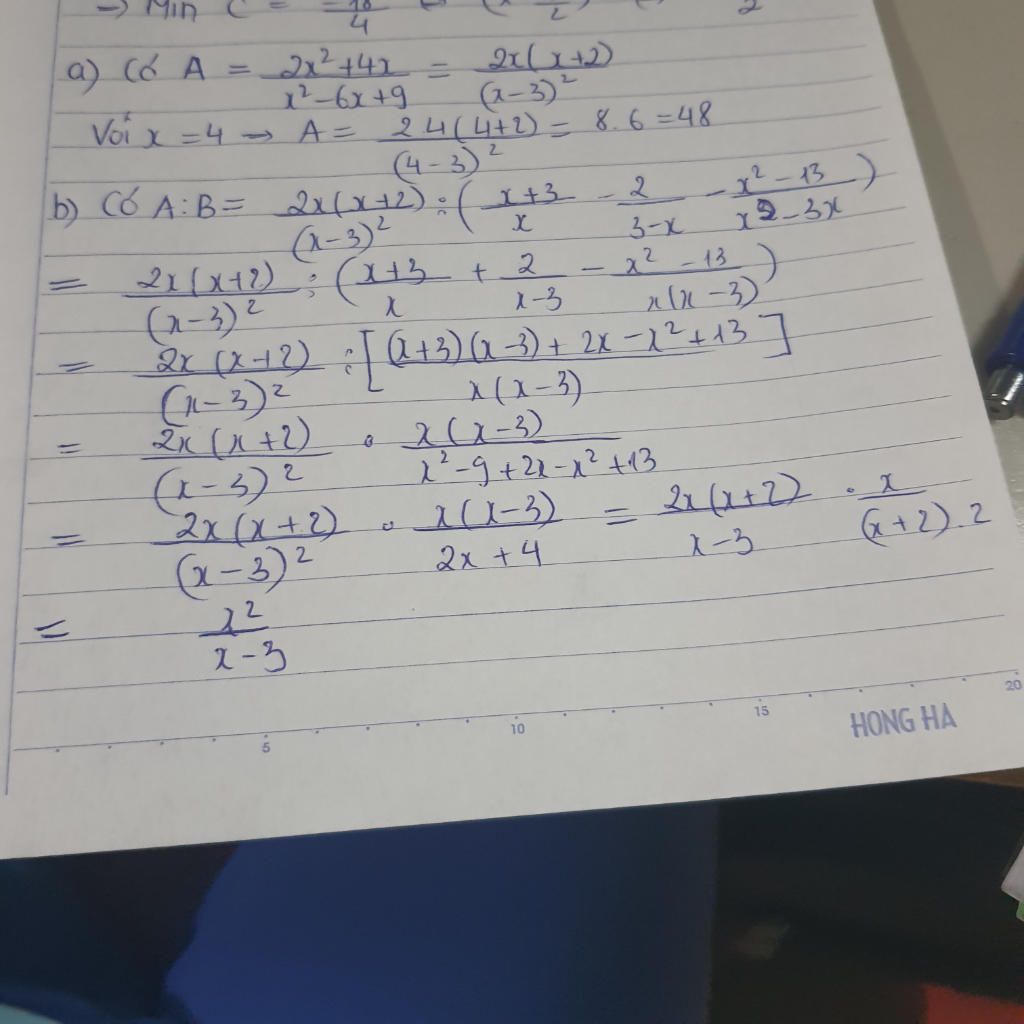 → Min C = -18/4
a) Có A = (2x²+4x)/(x²-6x+9) = 2x(x+2)/(x-3)²
Với x = 4 → A = 2.4(4+2)/(4-3)² = 8.6 = 48
b) Có A:B = 2x(x+2)/(x-3)² : ((x+3)/x - 2/(3-x) - (x²-13)/(x²-3x))
= 2x(x+2)/(x-3)² : ((x+3)/x + 2/(x-3) - (x²-13)/(x(x-3)))
= 2x(x+2)/(x-3)² : [((x+3)(x-3)+2x-x²+13)/(x(x-3))]
= 2x(x+2)/(x-3)² . x(x-3)/(x²-9+2x-x²+13)
= 2x(x+2)/(x-3)² . x(x-3)/(2x+4) = 2x(x+2)/(x-3) . x/((x+2).2)
= x²/(x-3)
5 10 15 20
HONG HA